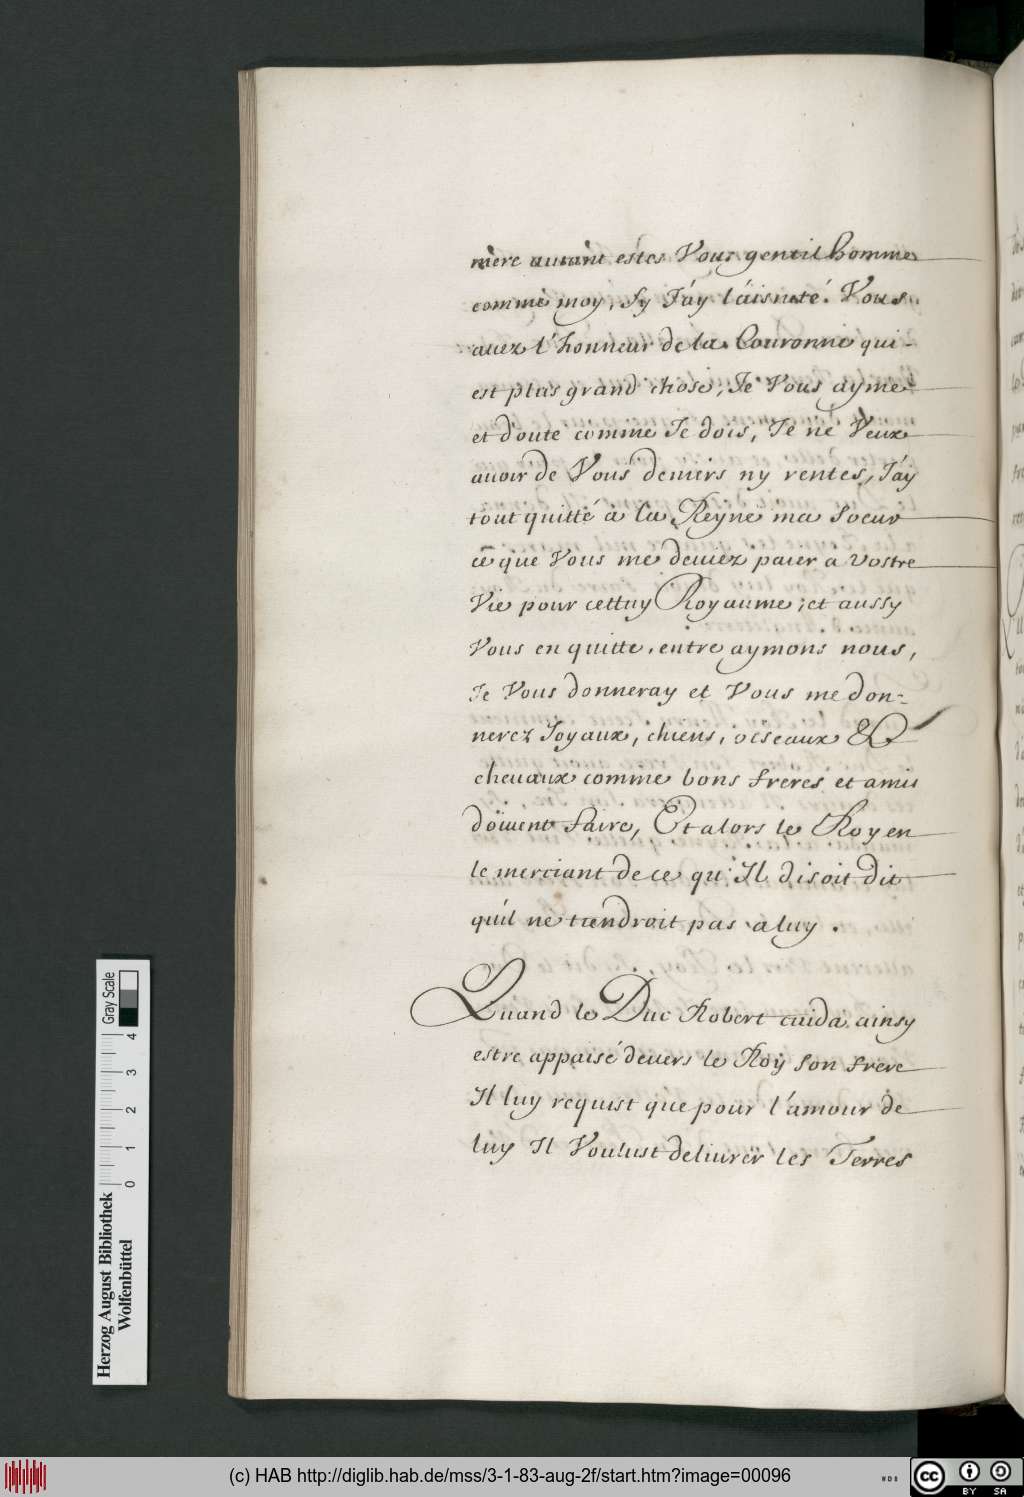 mère autant estes Vous gentil homme
comme moy, Sy J'ay l'aisneté. Vous
auez l'honneur de la Couronne qui -
est plus grand chose, Je Vous ayme
et doute comme Je dois, Je ne Veux
auoir de Vous deniers ny rentes, J'ay
tout quitté à la Reyne ma Soeur
ce que Vous me deuiez paier a Vostre
Vie pour cettuy Royaume, et aussy
Vous en quitte, entre aymons nous,
Je Vous donneray et Vous me don-
nerez Joyaux, chiens, oeseaux &
cheuaux comme bons freres et amis
doiuent faire, Et alors le Roy en
le merciant de ce qu'Il disoit dit
qu'il ne tiendroit pas a luy.
Quand le Duc Robert cuida ainsy
estre appaisé deuers le Roy son frere
Il luy requist que pour l'amour de
luy Il Voulust deliurer les Terres
Gray Scale
0 1 2 3 4
Herzog August Bibliothek
Wolfenbüttel
(c) HAB http://diglib.hab.de/mss/3-1-83-aug-2f/start.htm?image=00096
WDB
cc BY SA